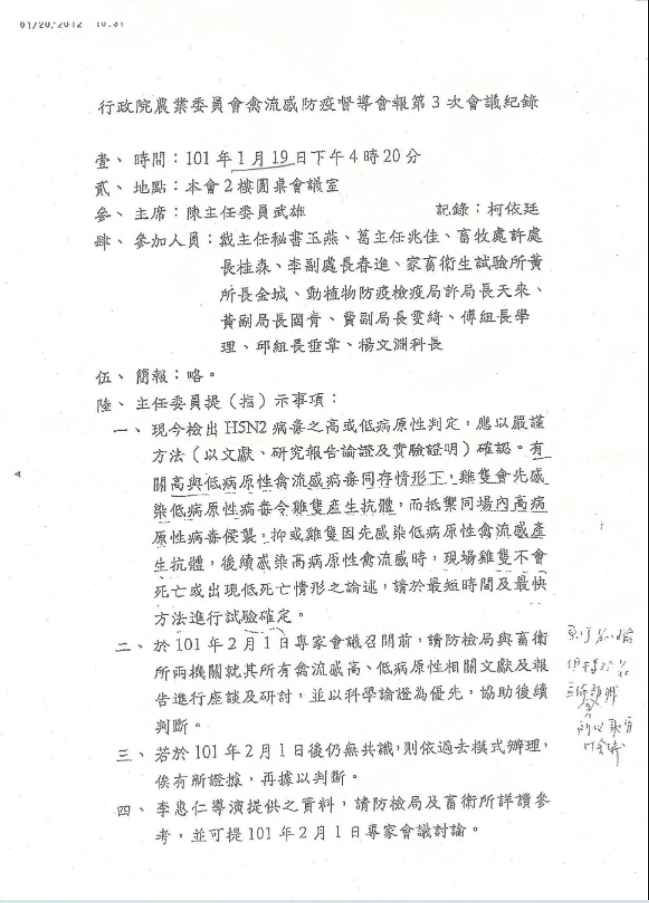 行政院農業委員會禽流感防疫督導會報第3次會議紀錄
壹、時間：101年1月19日下午4時20分
貳、地點：本會2樓圓桌會議室
參、主席：陳主任委員武雄 記錄：柯依廷
肆、參加人員：戴主任秘書玉燕、葛主任兆佳、畜牧處許處
長桂森、李副處長春進、家畜衛生試驗所黃
所長金城、動植物防疫檢疫局許局長天來、
黃副局長國青、費副局長雯綺、傅組長學
理、邱組長垂章、楊文淵科長
伍、簡報：略。
陸、主任委員提（指）示事項：
一、現今檢出H5N2病毒之高或低病原性判定，應以嚴謹
方法（以文獻、研究報告論證及實驗證明）確認。有
關高與低病原性禽流感病毒同存情形下，雞隻會先感
染低病原性病毒令雞隻產生抗體，而抵禦同場內高病
原性病毒侵襲，抑或雞隻因先感染低病原性禽流感產
生抗體，後續感染高病原性禽流感時，現場雞隻不會
死亡或出現低死亡情形之論述，請於最短時間及最快
方法進行試驗確定。
二、於101年2月1日專家會議召開前，請防檢局與畜衛
所兩機關就其所有禽流感高、低病原性相關文獻及報
告進行座談及研討，並以科學論證為優先，協助後續
判斷。
三、若於101年2月1日後仍無共識，則依過去模式辦理，
俟有新證據，再據以判斷。
四、李惠仁導演提供之資料，請防檢局及畜衛所詳讀參
考，並可提101年2月1日專家會議討論。